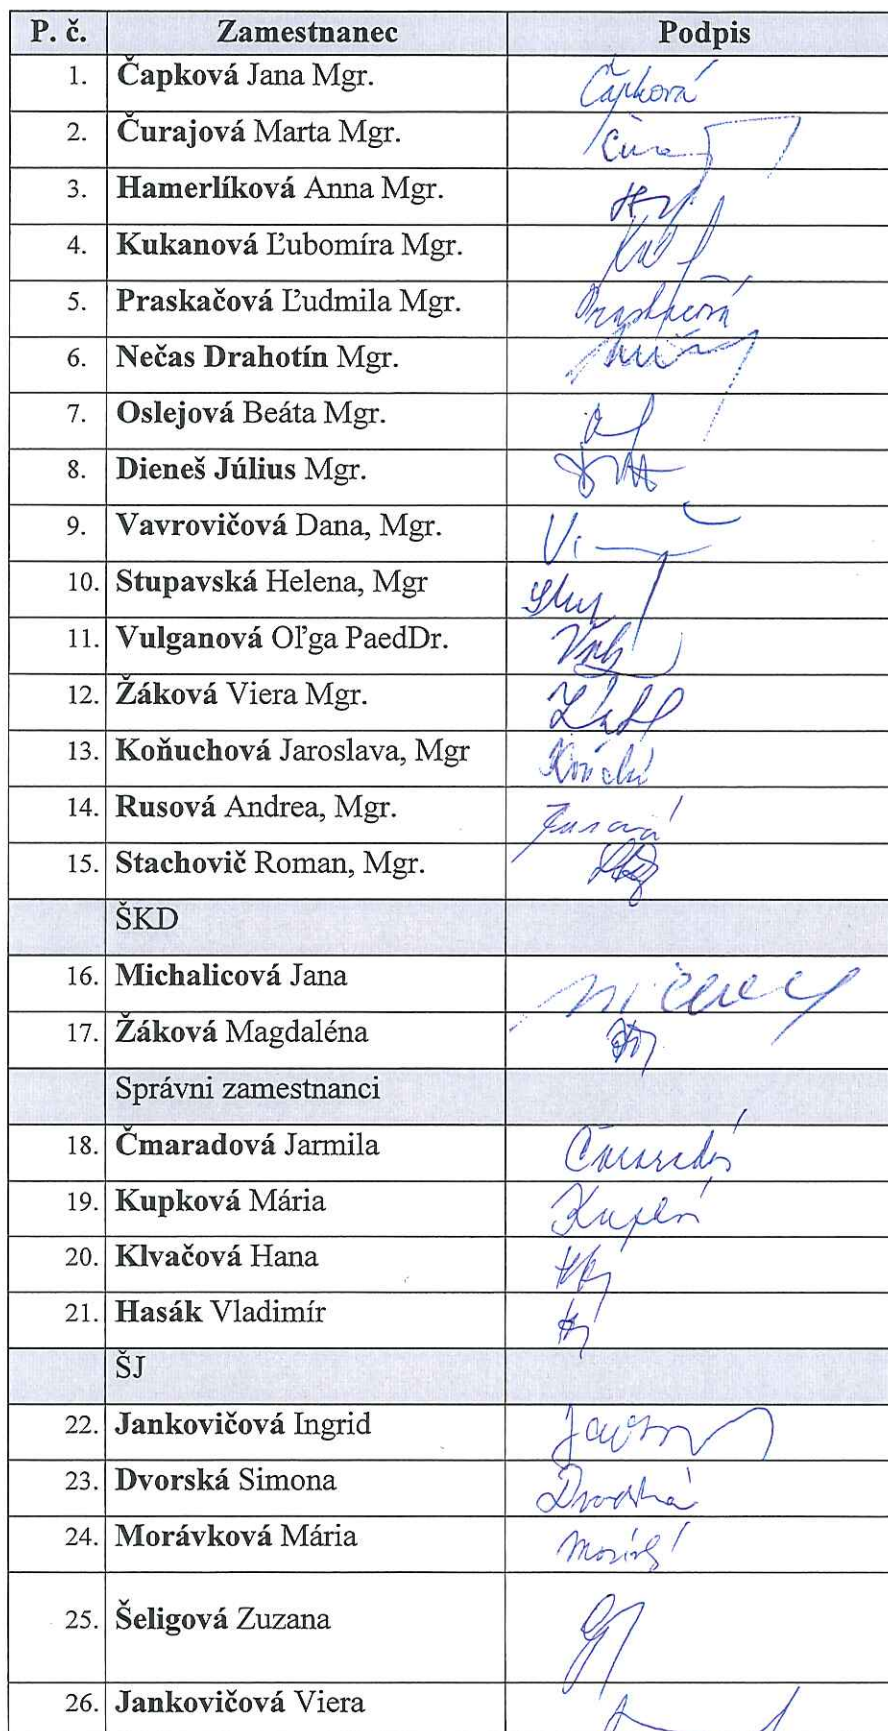 P. č. Zamestnanec Podpis
1. Čapková Jana Mgr. Čapková
2. Čurajová Marta Mgr.
3. Hamerlíková Anna Mgr.
4. Kukanová Ľubomíra Mgr.
5. Praskačová Ľudmila Mgr. Praskačová
6. Nečas Drahotín Mgr.
7. Oslejová Beáta Mgr.
8. Dieneš Július Mgr.
9. Vavrovičová Dana, Mgr.
10. Stupavská Helena, Mgr
11. Vulganová Oľga PaedDr.
12. Žáková Viera Mgr.
13. Koňuchová Jaroslava, Mgr
14. Rusová Andrea, Mgr. Rusová
15. Stachovič Roman, Mgr.
ŠKD
16. Michalicová Jana
17. Žáková Magdaléna
Správni zamestnanci
18. Čmaradová Jarmila
19. Kupková Mária
20. Klvačová Hana
21. Hasák Vladimír
ŠJ
22. Jankovičová Ingrid
23. Dvorská Simona Dvorská
24. Morávková Mária
25. Šeligová Zuzana
26. Jankovičová Viera